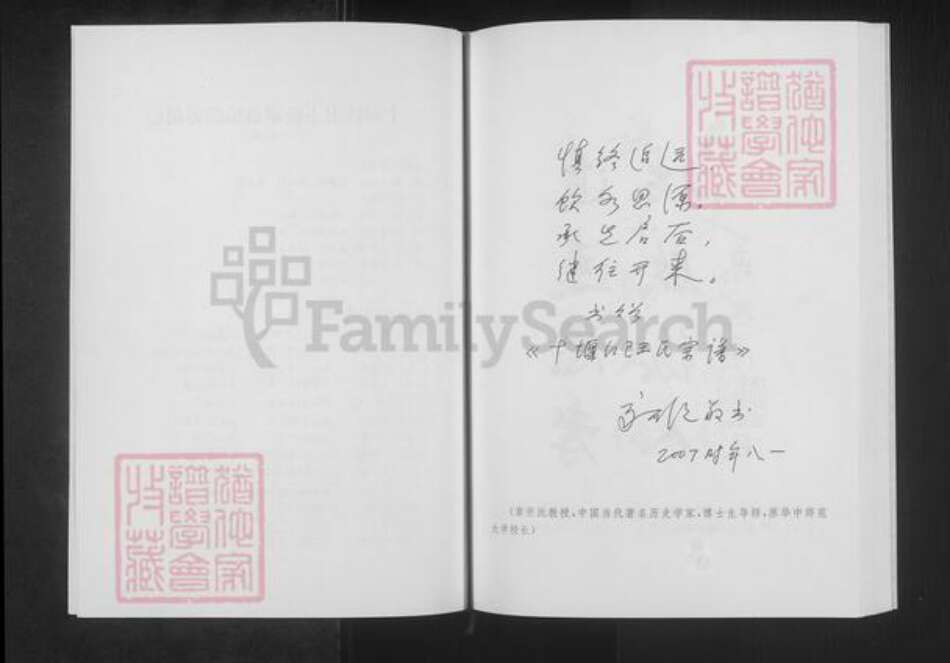 猶他家
譜學會
收藏
慎终追远,
饮水思源,
承先启后,
继往开来。
书赠
《十堰红卫王氏宗谱》
章开沅敬书
2007时年八一
(章开沅教授,中国当代著名历史学家,博士生导师,原华中师范
大学校长)
FamilySearch
猶他家
譜學會
收藏